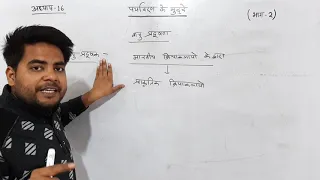 अध्याय-16 पर्यावरण के मुद्दे (भाग-2)
वायु प्रदूषण
प्रदूषक - मानवीय क्रियाकलापों के द्वारा
↓
प्राकृतिक क्रियाकलापों